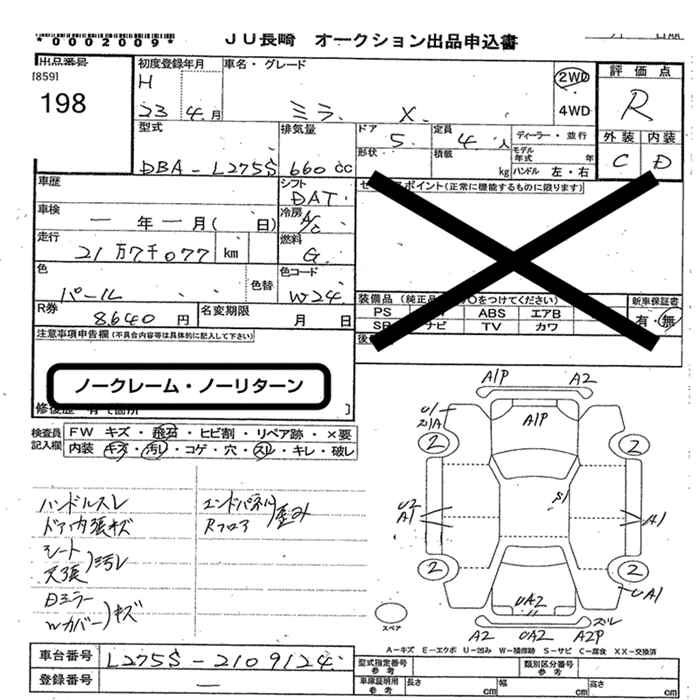 *0002009*
JU長崎 オークション出品申込書
出品番号
[859]
198
初度登録年月
H
23 4月
車名・グレード
ミラ X
2WD
4WD
評価点
R
外装 内装
C D
型式
DBA-L275S
排気量
660cc
ドア
5
形状
定員
4人
積載
kg
ディーラー・並行
モデル年式 年
ハンドル 左・右
車歴
シフト
DAT
車検
一年一月( 日)
冷房
A/C
走行
21万7千077 km
燃料
G
色
パール
色替
色コード
W24
R券
8,640円
名変期限
月 日
ポイント(正常に機能するものに限ります)
装備品(純正品
○をつけてください)
新車保証書
PS
ABS エアB
有・無
ナビ TV カワ
注意事項申告欄(不具合内容等は具体的に記入して下さい)
ノークレーム・ノーリターン
修復歴 有で箇所 ]
検査員記入欄
FW キズ・飛石・ヒビ割・リペア跡・×要
内装 キズ・汚レ・コゲ・穴・スレ・キレ・破レ
ハンドルスレ
ドア内張キズ
シート
天張)汚レ
Dミラー
Wカバー)キズ
エンドパネル
Rフロア)歪み
A1P A2
U1
A1P
2 2
S1
U2
A1
A1
2 2
UA1
UA2
スレ
A2 UA2 A2P
スペア
A-キズ E-エクボ U-凹み W-補修跡 S-サビ C-腐食 XX-交換済
車台番号
L275S-2109124
登録番号
一
型式指定番号
参考
類別区分番号
参考
車庫証明用
参考
長さ cm 幅 cm 高さ cm